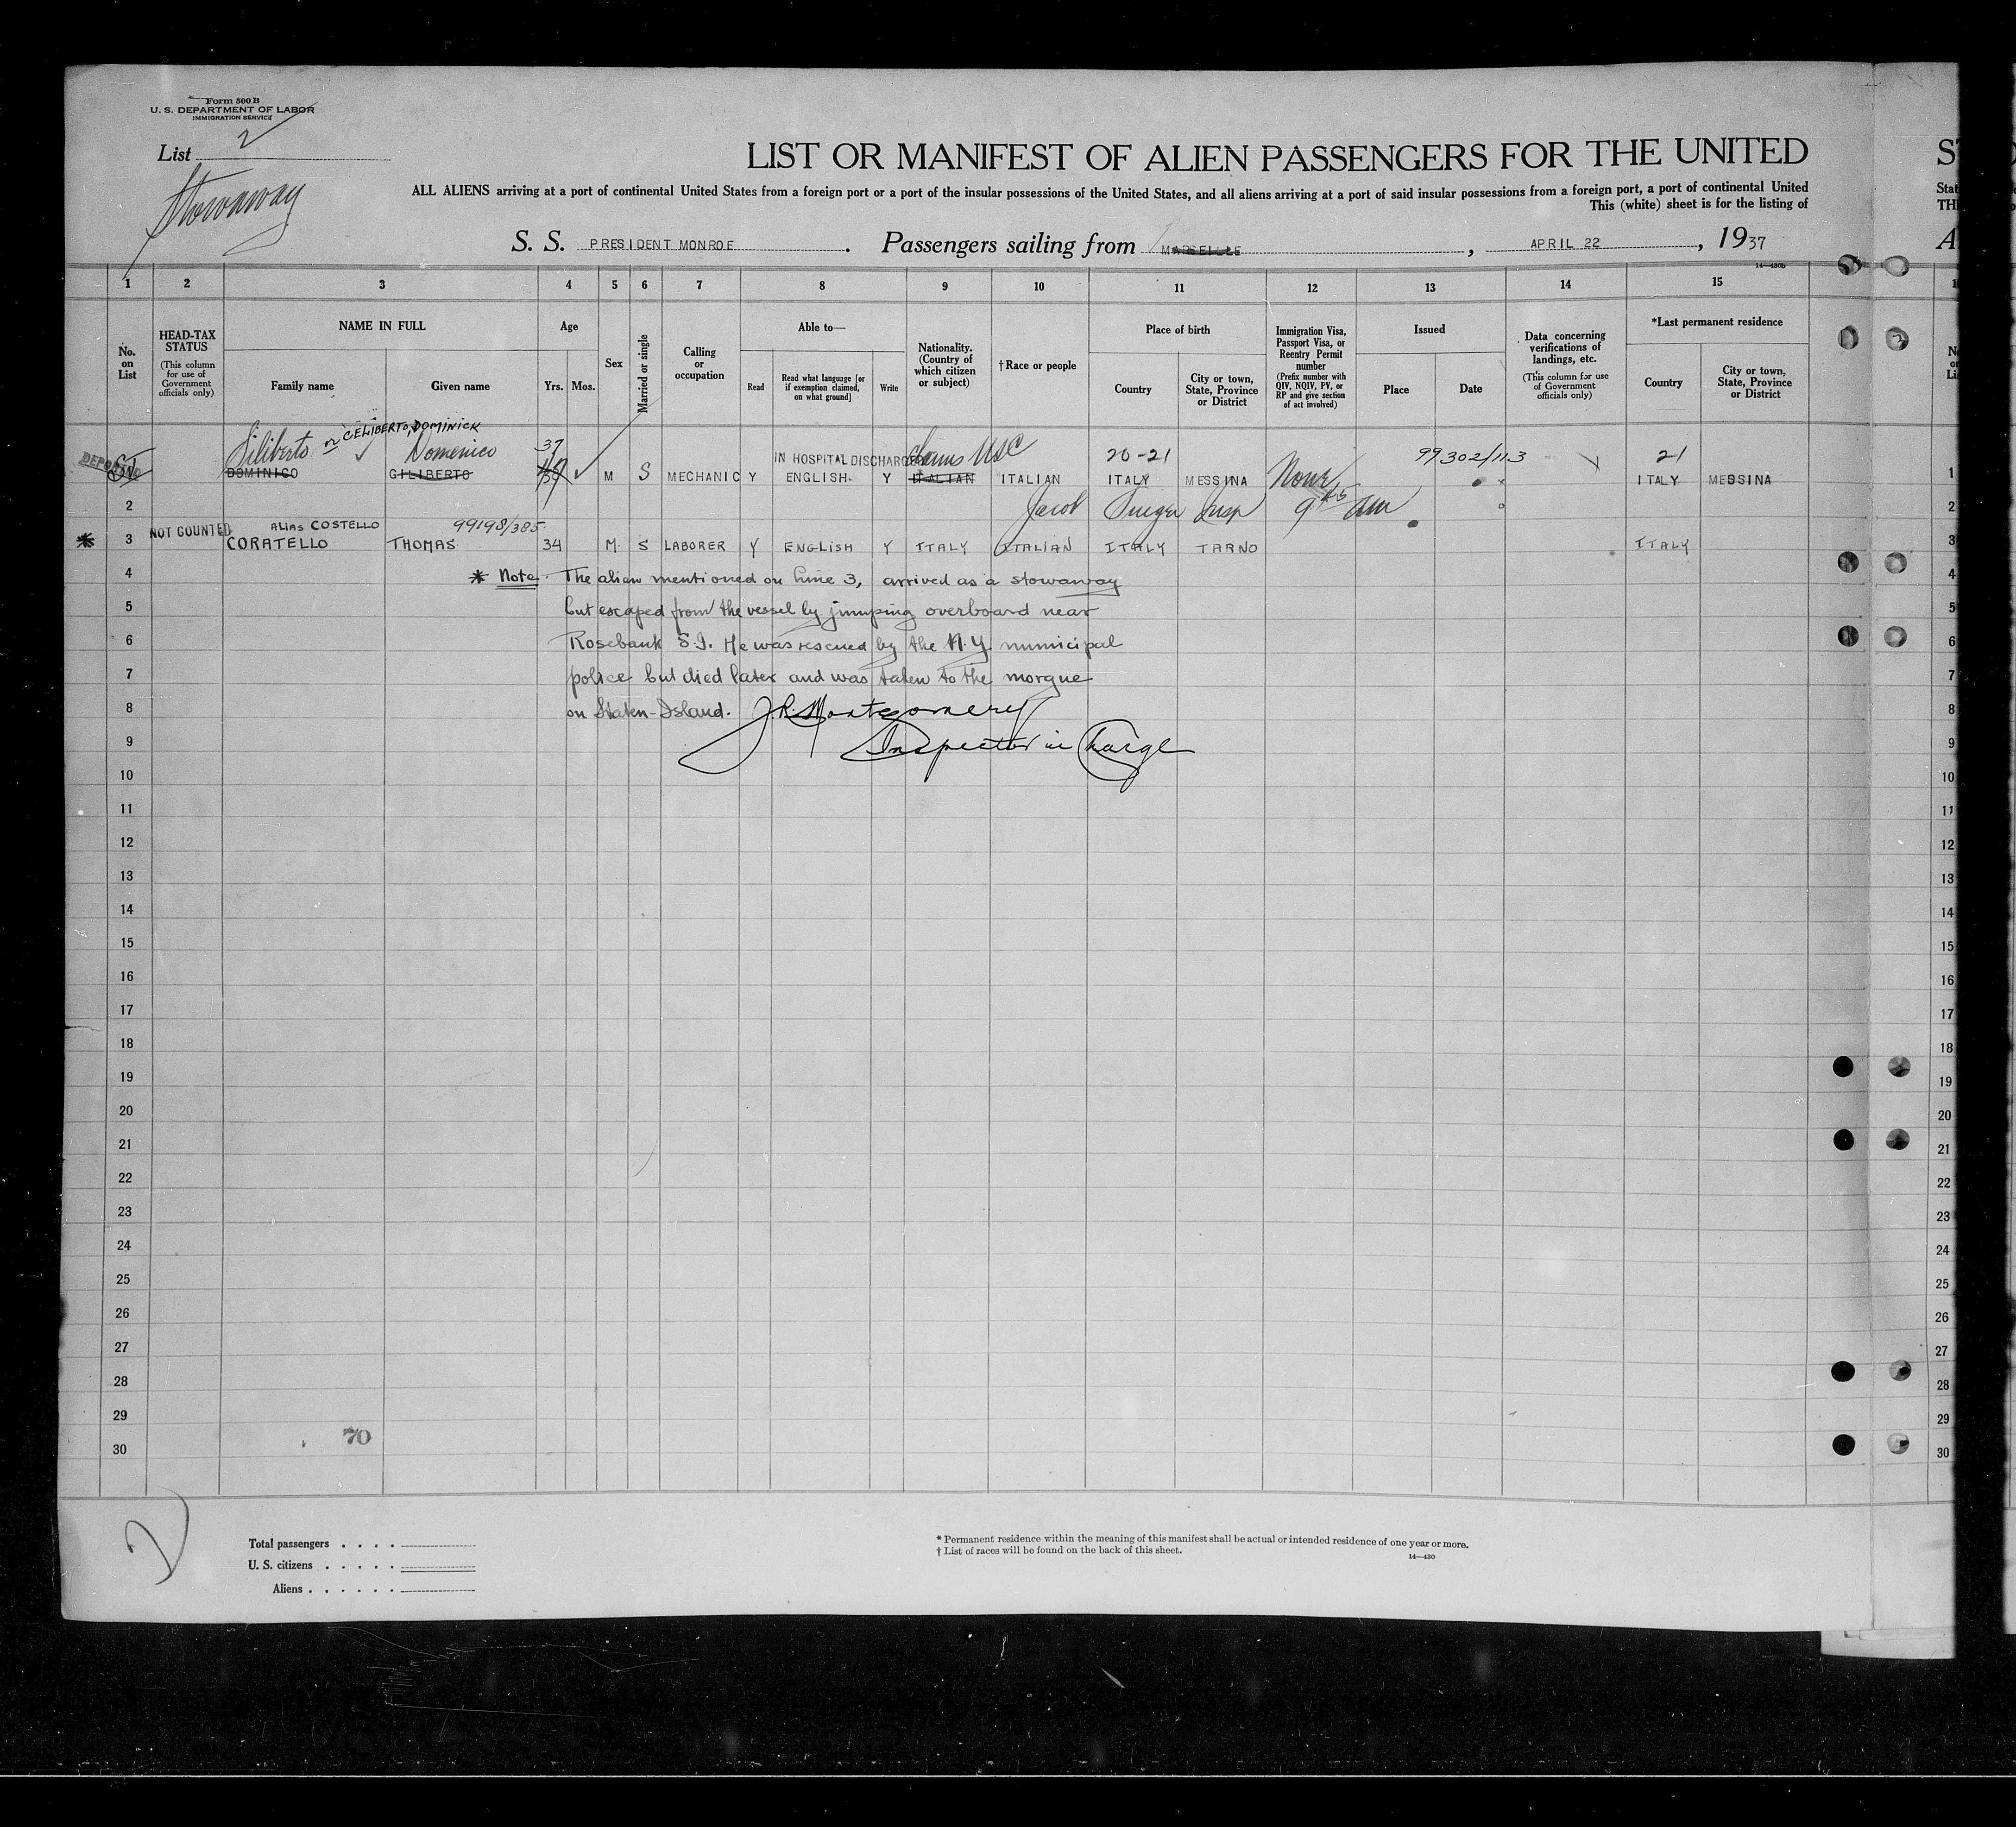 Form 500 B
U. S. DEPARTMENT OF LABOR
IMMIGRATION SERVICE
List 2
Stowaway
LIST OR MANIFEST OF ALIEN PASSENGERS FOR THE UNITED
ALL ALIENS arriving at a port of continental United States from a foreign port or a port of the insular possessions of the United States, and all aliens arriving at a port of said insular possessions from a foreign port, a port of continental United
This (white) sheet is for the listing of
S. S. PRESIDENT MONROE. Passengers sailing from MARSEILLE, APRIL 22, 1937
14—430b
1 2 3 4 5 6 7 8 9 10 11 12 13 14 15
No. on List
HEAD-TAX STATUS
(This column for use of Government officials only)
NAME IN FULL
Family name Given name
Age
Yrs. Mos.
Sex
Married or single
Calling or occupation
Able to—
Read
Read what language [or if exemption claimed, on what ground]
Write
Nationality. (Country of which citizen or subject)
†Race or people
Place of birth
Country
City or town, State, Province or District
Immigration Visa, Passport Visa, or Reentry Permit number
(Prefix number with QIV, NQIV, PV, or RP and give section of act involved)
Issued
Place Date
Data concerning verifications of landings, etc.
(This column for use of Government officials only)
*Last permanent residence
Country
City or town, State, Province or District
or CELIBERTO, DOMINICK
Siliberto Domenico 37 IN HOSPITAL DISCHARGED Claims USC 20-21 99302/113 21
DEPORTED
DOMINICO GILIBERTO M S MECHANIC Y ENGLISH Y ITALIAN ITALIAN ITALY MESSINA None ITALY MESSINA 1
2 Jacob Insp 9 45 am 2
NOT COUNTED ALIAS COSTELLO 99198/385
* 3 CORATELLO THOMAS 34 M S LABORER Y ENGLISH Y ITALY ITALIAN ITALY TARNO ITALY 3
4 * Note. The alien mentioned on line 3, arrived as a stowaway 4
5 but escaped from the vessel by jumping overboard near 5
6 Rosebank S.I. He was rescued by the N.Y. municipal 6
7 police but died later and was taken to the morgue 7
8 on Staten-Island. J.R. Montgomery 8
9 Inspector in Charge 9
10 10
11 11
12 12
13 13
14 14
15 15
16 16
17 17
18 18
19 19
20 20
21 21
22 22
23 23
24 24
25 25
26 26
27 27
28 28
29 29
70
30 30
2
Total passengers
U. S. citizens
Aliens
* Permanent residence within the meaning of this manifest shall be actual or intended residence of one year or more.
† List of races will be found on the back of this sheet.
14—430